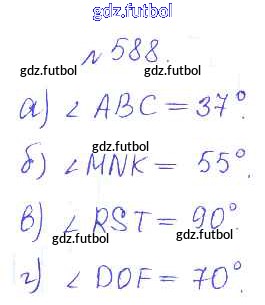 gdz.futbol
№ 588.
gdz.futbol gdz.futbol
а) ∠ ABC = 37°.
gdz.futbol gdz.futbol
б) ∠ MNK = 55°.
в) ∠ RST = 90°.
gdz.futbol gdz.futbol
г) ∠ DOF = 70°.